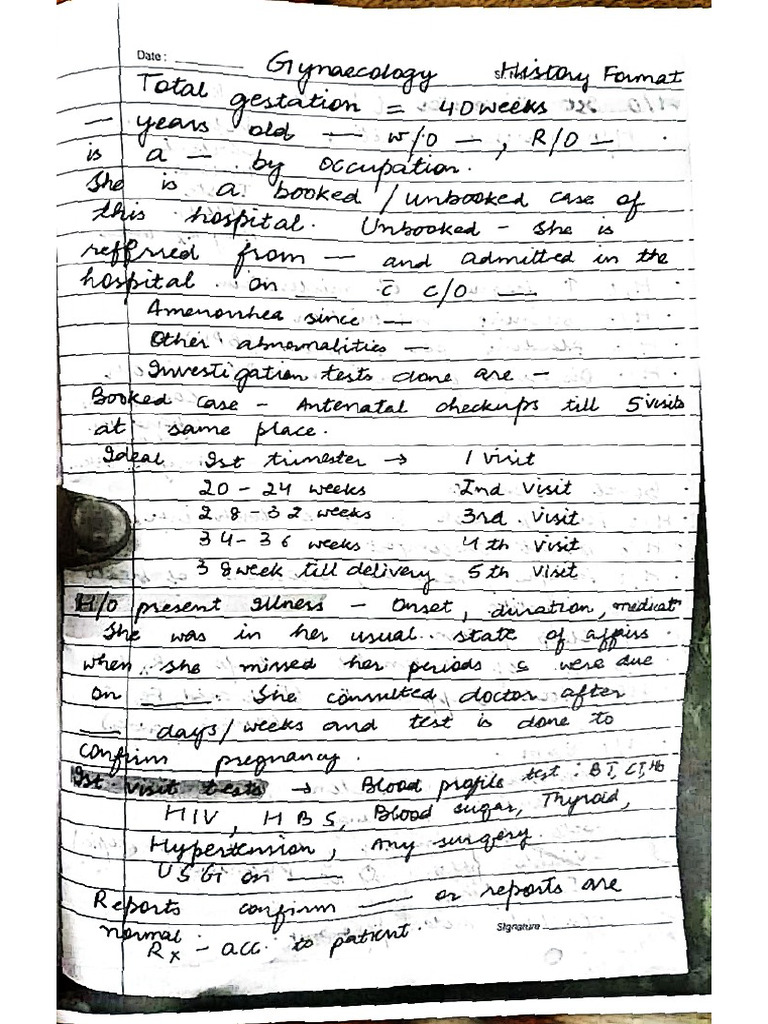 Date: ______ Gynaecology History Format
Total gestation = 40 weeks
— years old — w/o —, R/O —
is a — by occupation.
She is a booked / unbooked case of
this hospital. Unbooked - She is
reffered from — and admitted in the
hospital on ___ c̄ c/o ___
Amenorrhea since —
Other abnormalities —
Investigation tests done are -
Booked case - Antenatal checkups till 5 visits
at same place.
Ideal Ist trimester → 1 visit
20 - 24 weeks 2nd visit
28 - 32 weeks 3rd visit
34 - 36 weeks 4th visit
38 week till delivery 5th visit
H/O present Illness - Onset, duration, medicatⁿ
She was in her usual state of affairs
when she missed her periods s were due
on ____. She consulted doctor after
___ days/weeks and test is done to
confirm pregnancy.
Ist visit tests → Blood profile test: BT, CT, Hb
HIV, HBS, Blood sugar, Thyroid,
Hypertension, Any surgery.
USG on ___
Reports confirm ___ or reports are
normal.
Rx - acc. to patient.
Signature ______